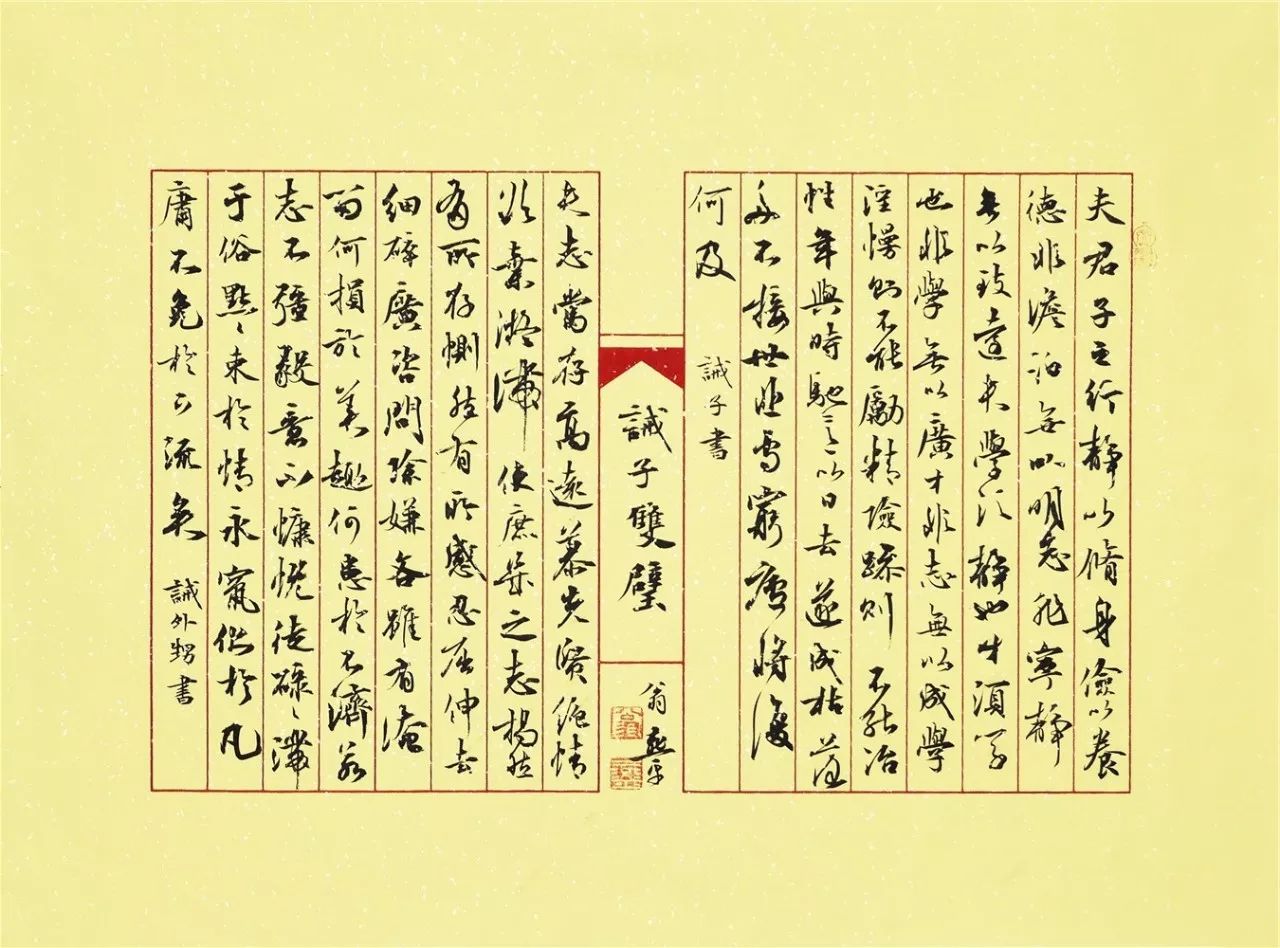 夫君子之行靜以脩身儉以養
德非澹泊無以明志非寧靜
無以致遠夫學須靜也才須學
也非學無以廣才非志無以成學
淫慢則不能勵精險躁則不能冶
性年與時馳意以日去遂成枯落
多不接世悲守窮廬將復
何及
誡子書
誡子雙璧
翁
夫志當存高遠慕先賢絕情
欲棄凝滯使庶幾之志揭然
有所存惻然有所感忍屈伸去
細碎廣咨問除嫌吝雖有淹
留何損於美趣何患於不濟若
志不彊毅意不慷慨徒碌〻滯
于俗默〻束於情永竄伏於凡
庸不免於下流矣
誡外甥書